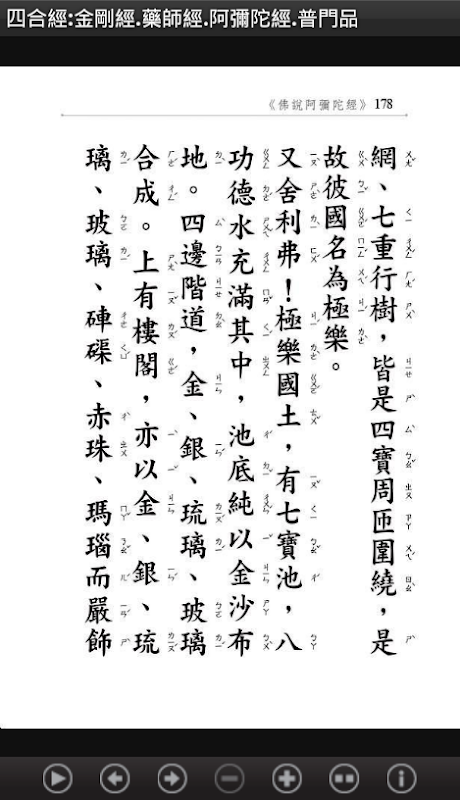 四合經:金剛經.藥師經.阿彌陀經.普門品
《佛說阿彌陀經》 178
網、七重行樹，皆是四寶周匝圍繞，是
故彼國名為極樂。
又舍利弗！極樂國土，有七寶池，八
功德水充滿其中，池底純以金沙布
地。四邊階道，金、銀、琉璃、玻璃
合成。上有樓閣，亦以金、銀、琉
璃、玻璃、硨磲、赤珠、瑪瑙而嚴飾